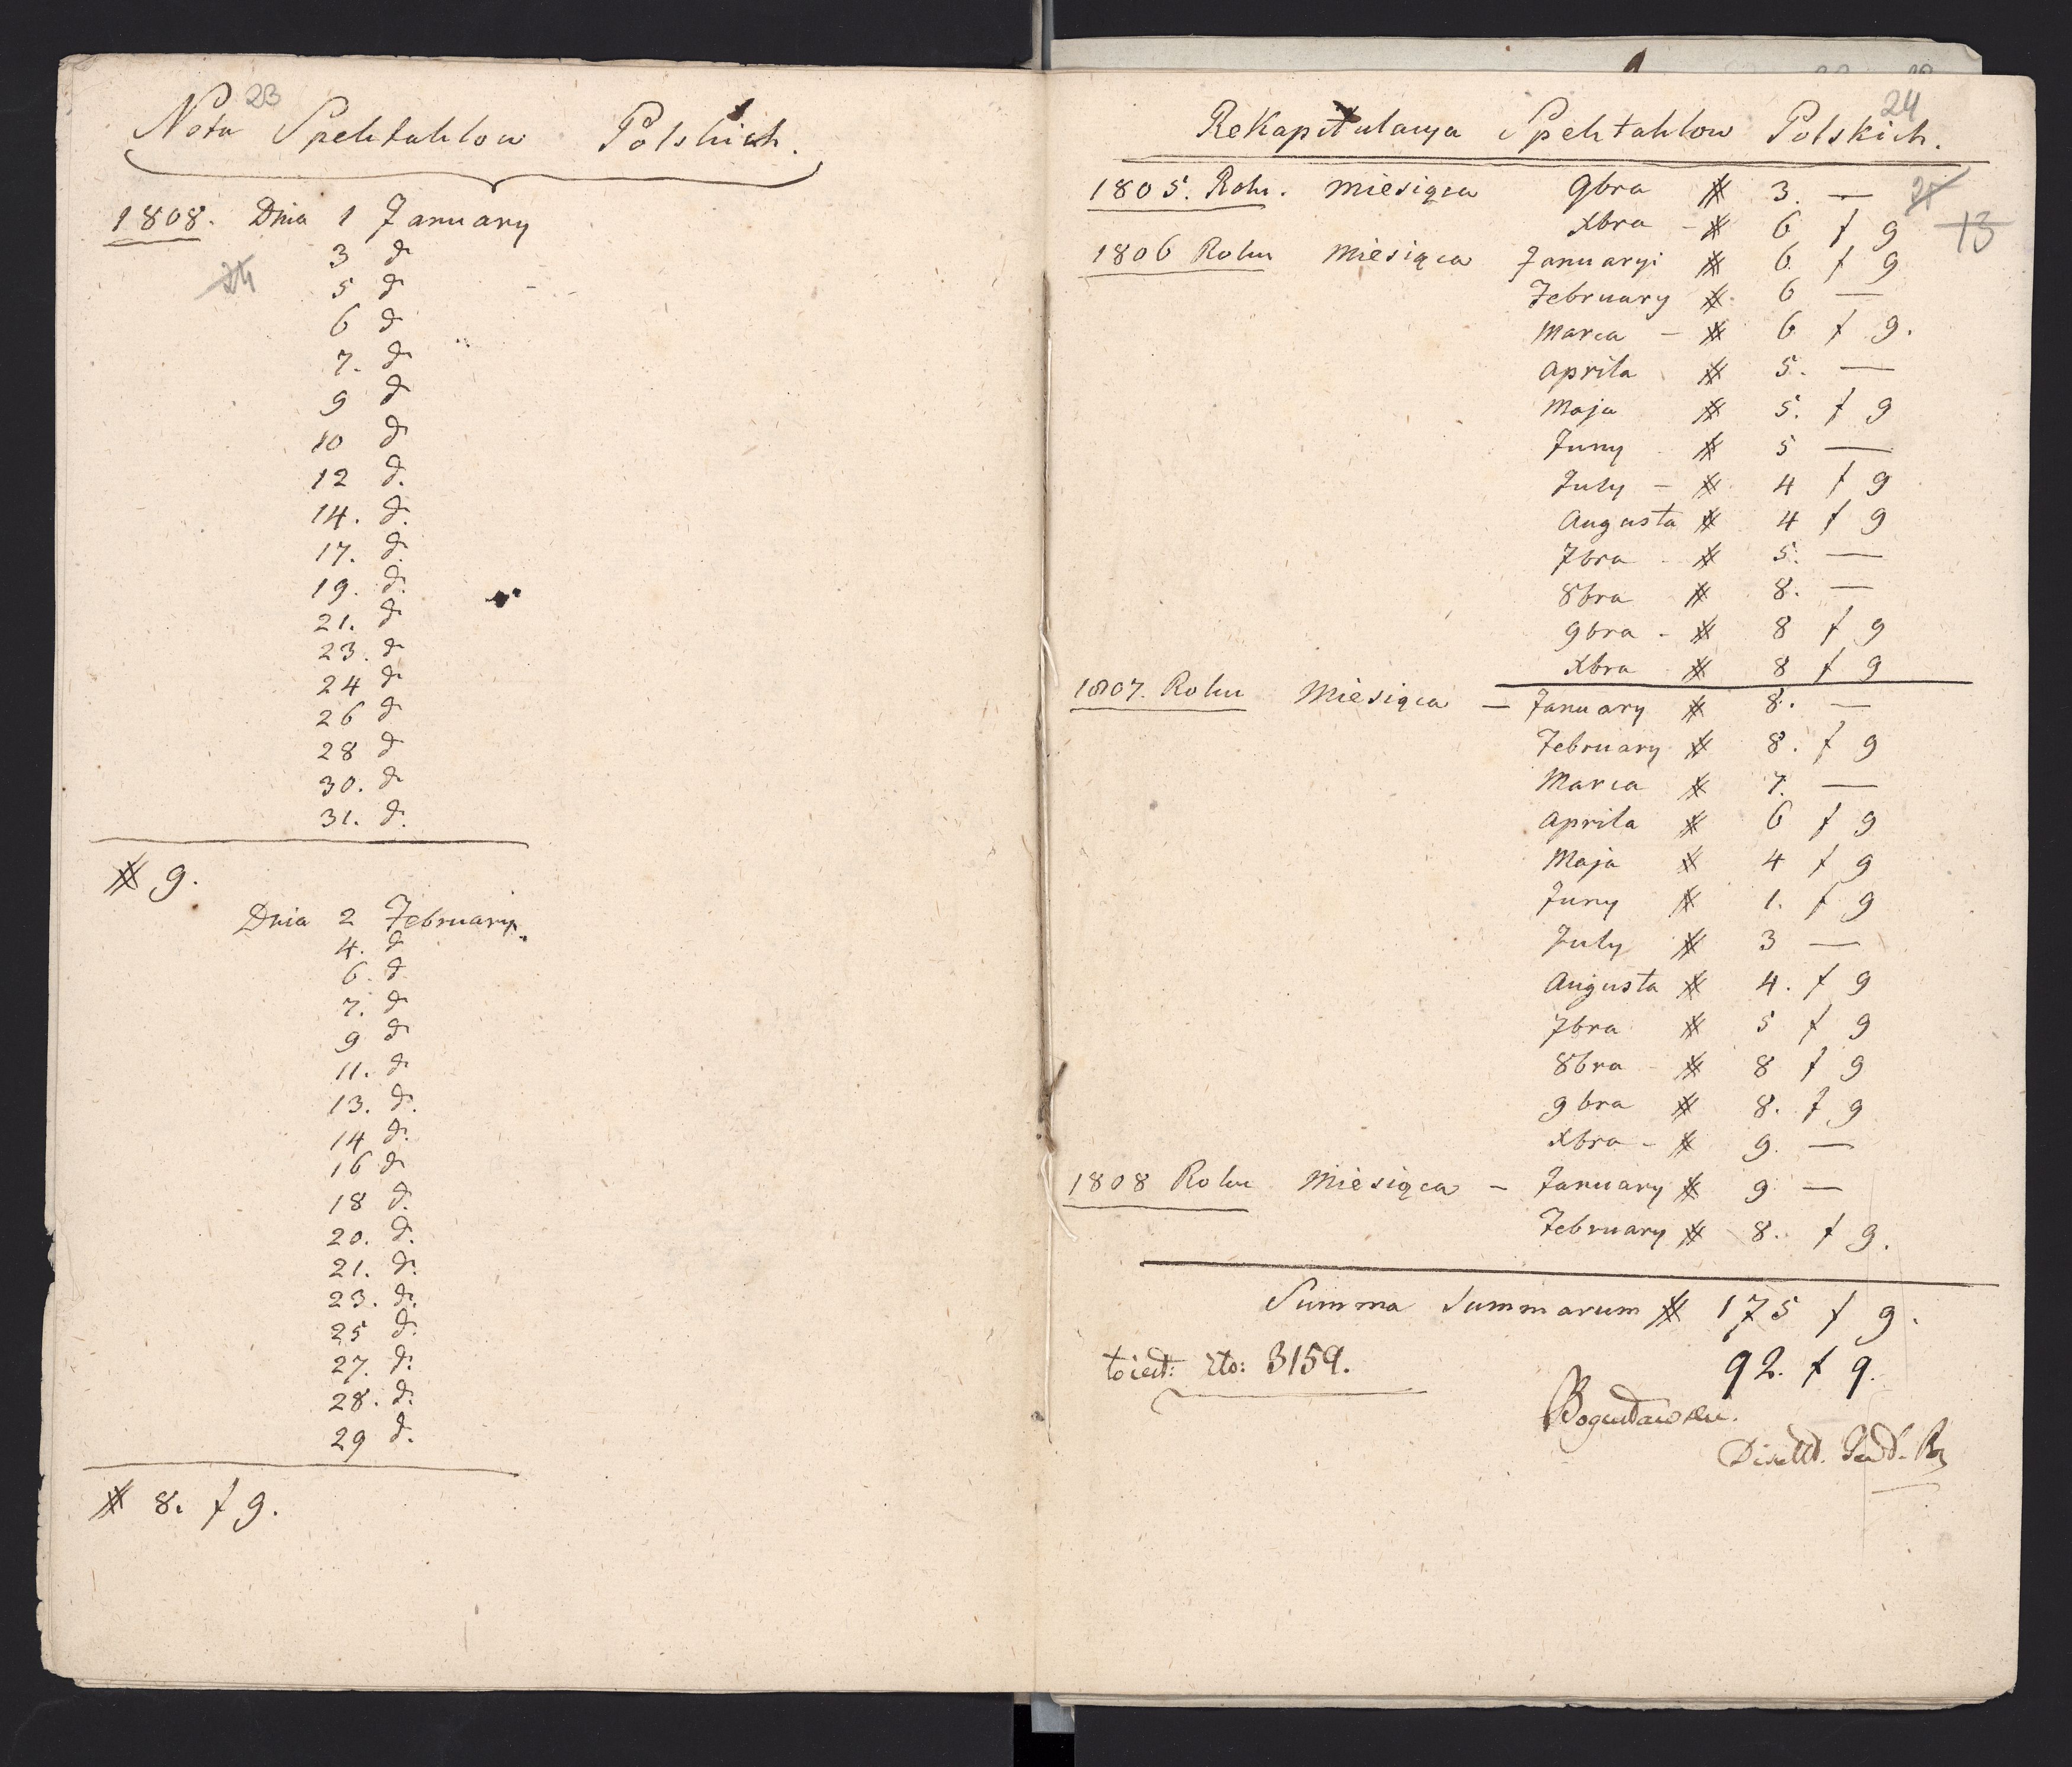 23
Nota Spektaklow Polskich.
1808. Dnia 1 January
24
3 d
5 d
6 d
7. d
9 d
10 d
12 d.
14. d.
17. d.
19. d.
21. d
23. d
24 d
26 d
28 d
30. d
31. d.
# 9.
Dnia 2 February.
4. d
6. d
7. d
9 d
11. d
13. d.
14 d.
16 d
18 d.
20. d.
21. d.
23. d.
25 d.
27. d.
28. d.
29 d.
# 8. f 9.
24
ReKapitulacya Spektaklow Polskich.
1805. Roku. Miesiąca 9bra # 3. —
Xbra - # 6 f 9
13
1806 Roku Miesiąca Januaryi # 6. f 9
February # 6 —
Marca — # 6 f 9.
Aprila # 5. —
Maja # 5. f 9
Juny # 5 —
July — # 4 f 9
Augusta # 4 f 9
7bra - # 5. —
8bra # 8. —
9bra - # 8 f 9
Xbra # 8 f 9
1807. Roku Miesiąca — January # 8. —
February # 8. f 9
Marca # 7. —
Aprila # 6 f 9
Maja # 4 f 9
Juny # 1. f 9
July # 3 —
Augusta # 4. f 9
7bra # 5 f 9
8bra - # 8 f 9
9bra # 8. f 9
Xbra - # 9. —
1808 Roku Miesiąca — January # 9 —
February # 8. f 9.
Summa Summarum # 175 f 9.
92. f 9.
toiest: zło: 3159.
Bogusławski.